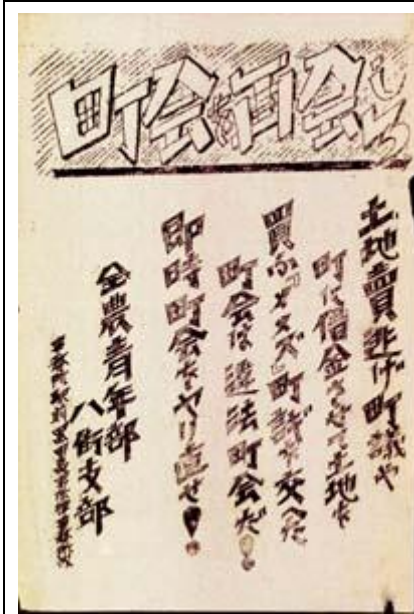 町会を 会しろ
土地賣逃げ町議や
町に借金させて土地を
買ふ 町議を交へた
町会は違法町会だ！
即時町会をヤリ直せ！
全農青年部
八街支部